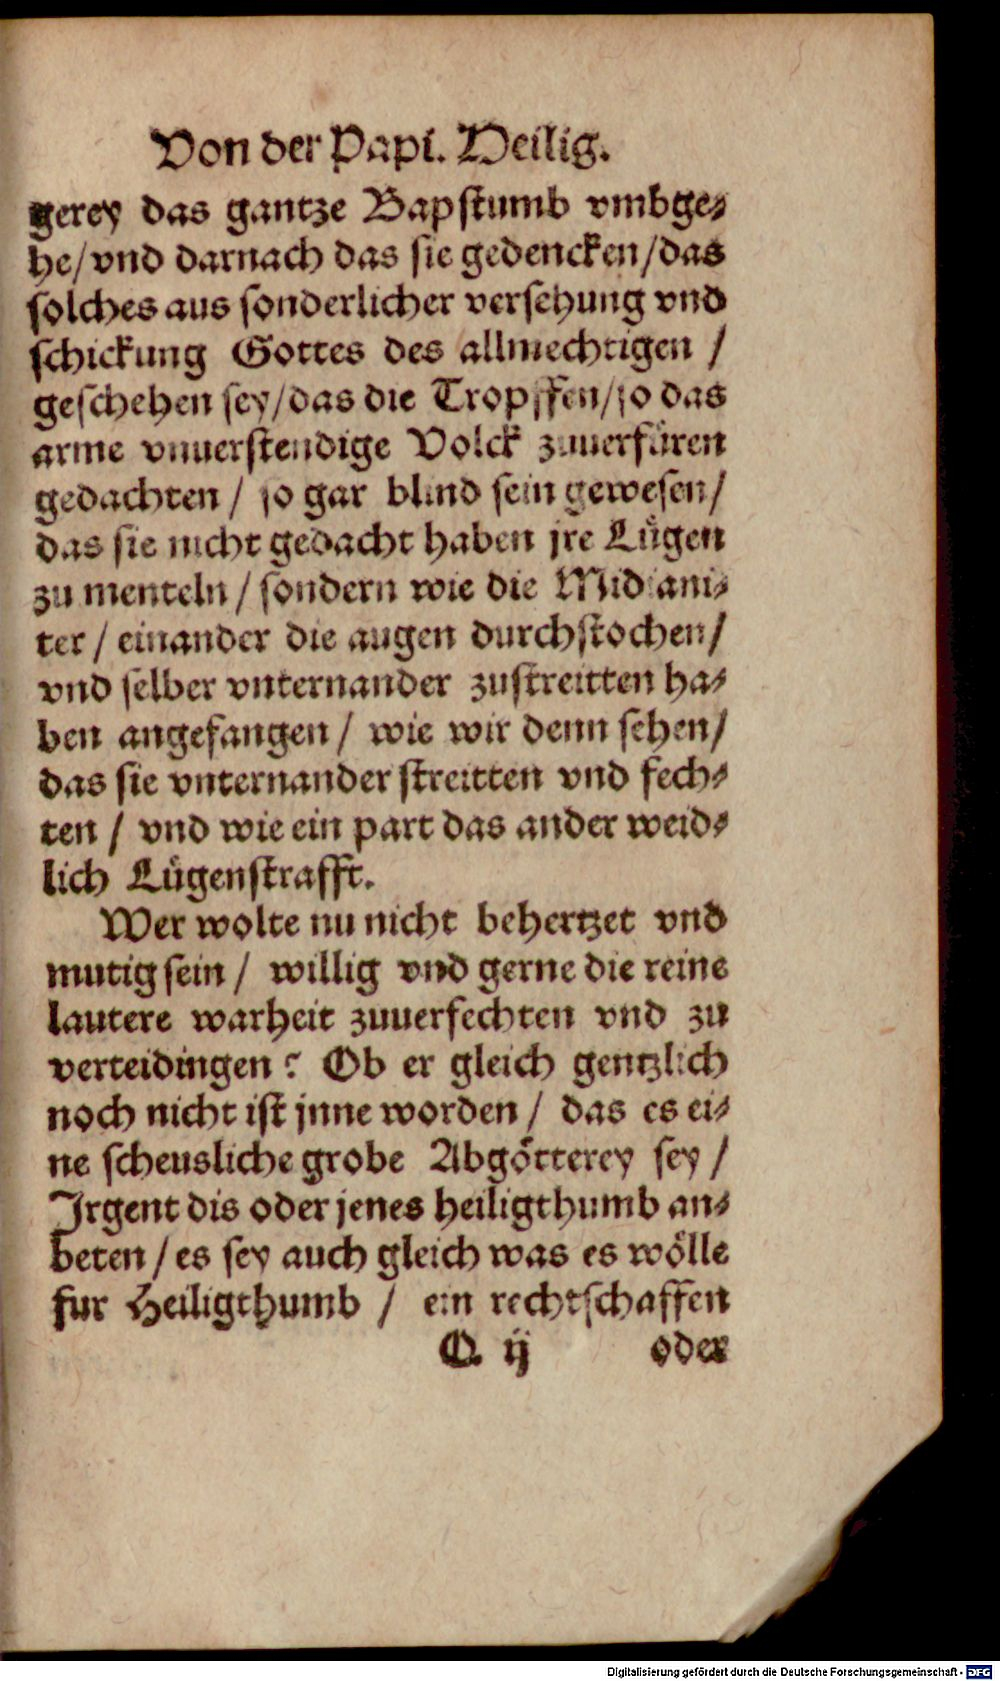 Von der Papi. Heilig.
gerey das gantze Bapstumb vmbge-
he/vnd darnach das sie gedencken/das
solches aus sonderlicher versehung vnd
schickung Gottes des allmechtigen /
geschehen sey/das die Tropffen/so das
arme vnuerstendige Volck zuuerfüren
gedachten / so gar blind sein gewesen/
das sie nicht gedacht haben jre Lügen
zu menteln / sondern wie die Midiani-
ter / einander die augen durchstochen/
vnd selber vnternander zustreitten ha-
ben angefangen / wie wir denn sehen/
das sie vnternander streitten vnd fech-
ten / vnd wie ein part das ander weid-
lich Lügenstrafft.
Wer wolte nu nicht behertzet vnd
mutig sein / willig vnd gerne die reine
lautere warheit zuuerfechten vnd zu
verteidingen? Ob er gleich gentzlich
noch nicht ist jnne worden / das es ei-
ne scheusliche grobe Abgötterey sey /
Irgent dis oder jenes heiligthumb an-
beten / es sey auch gleich was es wölle
fur Heiligthumb / ein rechtschaffen
O ij oder
Digitalisierung gefördert durch die Deutsche Forschungsgemeinschaft - DFG